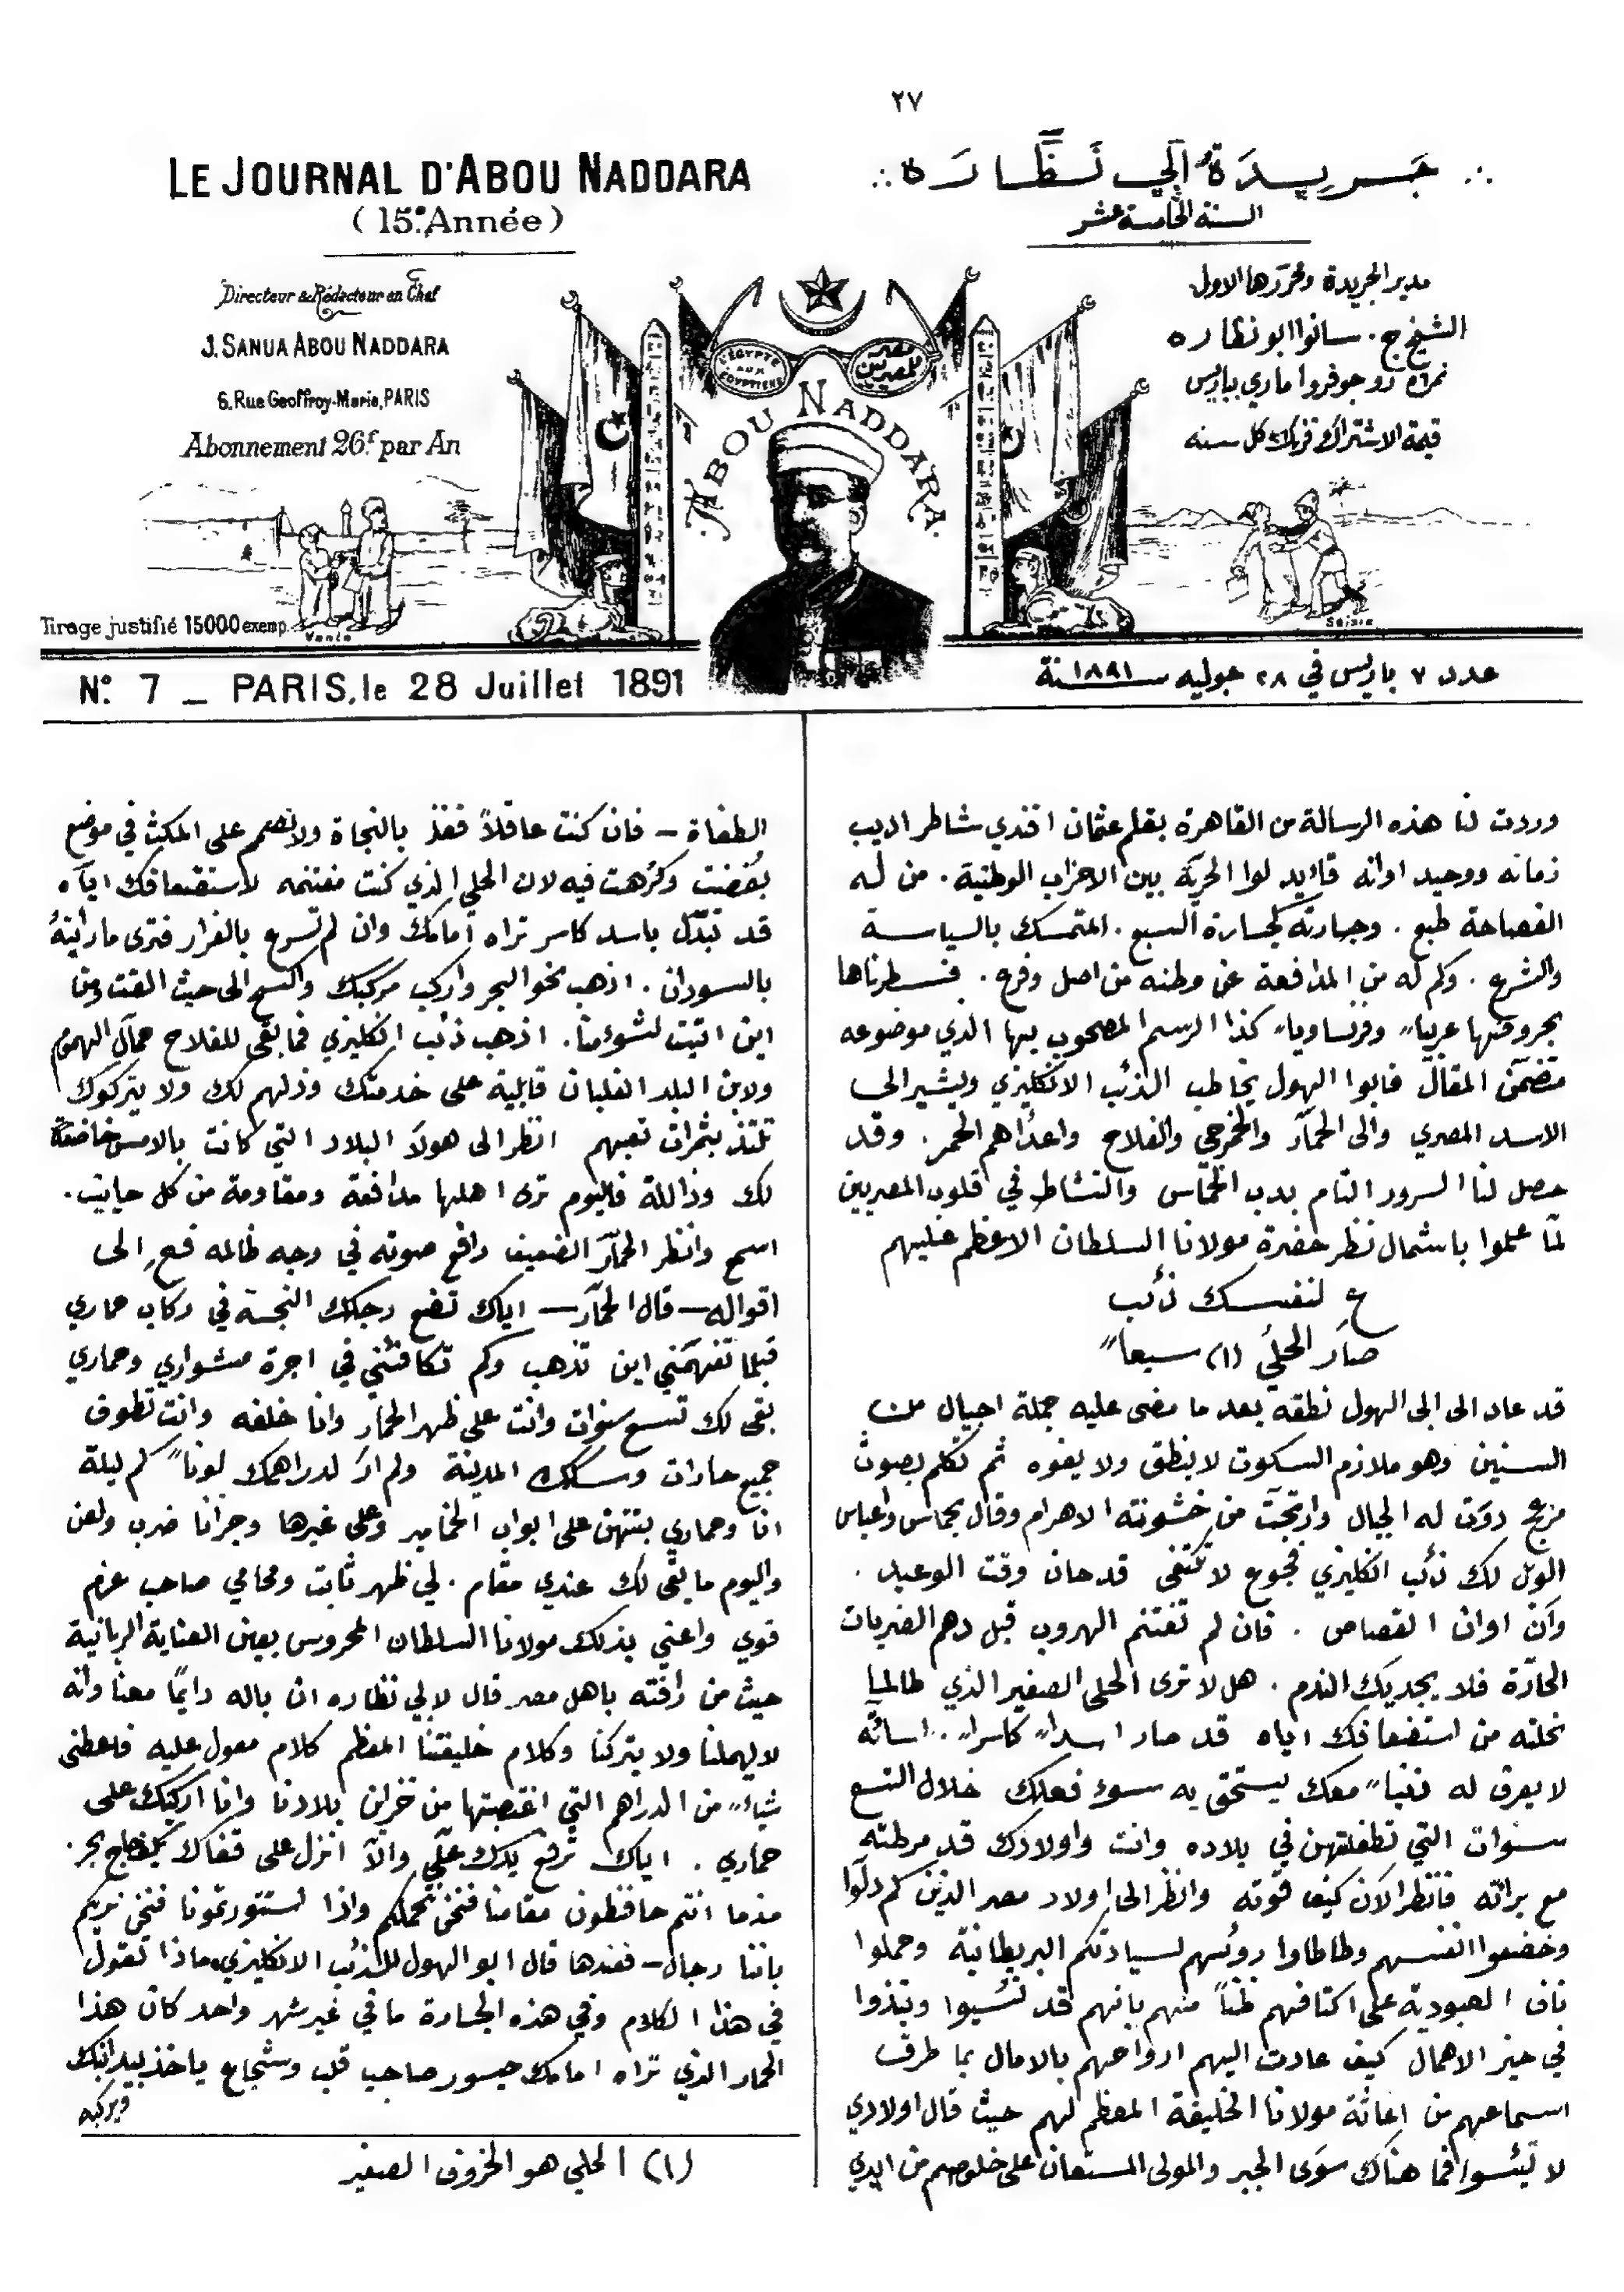 ٢٧
LE JOURNAL D'ABOU NADDARA
(15e Année)
Directeur & Rédacteur en Chef
J. SANUA ABOU NADDARA
6. Rue Geoffroy-Marie, PARIS
Abonnement 26f. par An
Tirage justifié 15000 exemp.
جَريدَةُ أبي نَظَّارَه
السنة الخامسة عشر
مدير الجريدة ومحررها الاول
الشيخ ج. سانوا ابو نظاره
نمرة ٦ رو جوفروا ماري بباريس
قيمة الاشتراك كل سنه
L'EGYPTE AUX EGYPTIENS
مصر للمصريين
ABOU NADDARA
No. 7 _ PARIS, le 28 Juillet 1891
عدد ٧ باريس في ٢٨ جوليه سنة ١٨٩١
وردت لنا هذه الرسالة من القاهرة بقلم عثمان افندي شاطر اديب
زمانه ووحيد اوانه قائد لوا الحرية بين الاحزاب الوطنية. من له
الفصاحة طبع. وجسارته كجسارة السبع. المتمسك بالسياسة
والشرع. وكم له من المدافعة عن وطنه من اصل وفرع. فسطرناها
بحروفها عربياً وفرنساوياً كذا الرسم المصحوب بها الذي موضوعه
متضمن المقال فابوا الهول يخاطب الذئب الانكليزي ويشير الى
الاسد المصري والى الحمّار والخمرجي والفلاح واعداهم الحمر. وقد
حصل لنا السرور التام بدب الحماس والنشاط في قلوب المصريين
لمّا علموا باشمال نظر حضرة مولانا السلطان الاعظم عليهم
عِ لنفسك ذئب
صار الحلي (١) سبعاً
قد عاد الى ابى الهول نطقه بعد ما مضى عليه جملة اجيال من
السنين وهو ملازم السكوت لا ينطق ولا يفوه ثم تكلم بصوت
مزعج دوت له الجبال وارتجت من خشونته الاهرام وقال بحماس واعباس
الويل لك ذئب انكليزي فجوع لا تكتفى قد حان وقت الوعيد.
وآن اوان القصاص. فان لم تغتنم الهروب قبل دهم الضربات
الحادّة فلا يجديك الندم. هل لا ترى الحلى الصغير الذي طالما
نخلته من استضعافك اياه قد صار اسداً كاسراً. اسائه
لا يعرف له ذنباً معك يستحق به سوء فعلك خلال التسع
سنوات التي تطفلتهن في بلاده وانت واولادك قد مرطته
مع براته فانظر الآن كيف قوته وانظر الى اولاد مصر الذين كم ذلوا
وخضعوا انفسهم وطاطاوا روئسهم لسيادتكم البريطانية وحملوا
ناف العبودية على اكتافهم ظناً منهم بانهم قد نُسيوا ونبذوا
في حيز الاهمال كيف عادت اليهم ارواحهم بالامال بما طرق
اسماعهم من اغاثة مولانا الخليفة المعظم لهم حيث قال اولادي
لا تيئسوا فما هناك سوى الجبر والمولى المستعان على خلوصهم من ايدي
الطغاة - فان كنت عاقلاً ففز بالنجاة ولا تصمم على المكث في موضع
بُغضت وكُرهت فيه لان الحلي الذي كنت مغتنمه لاستضعافك اياه
قد تبدّل باسد كاسر تراه امامك وان لم تسرع بالفرار فترى ما رأيتهُ
بالسودان. اذهب نحو البحر واركب مركبك واكسح الى حيث القت ومن
اين اتيت لشوءمنا. اذهب ذئب انكليزي فما بقى للفلاح حمال الهموم
ولابن البلد الغلبان قابلية على خدمتك وذلهم لك ولا يتركوك
تلتذ بثمرات تعبهم انظر الى هولا البلاد التي كانت بالامس خاضعة
لك وذاللة فاليوم ترى اهلها مدافعة ومقاومة من كل جانب.
اسمع وانظر الحمّار الضعيف رافع صوته في وجه ظالمه فعِ الى
اقواله - قال الحمّار - اياك تضع رجلك النجسة في ركاب حماري
قبلما تفهمني اين تذهب وكم تكافئني في اجرة مشواري وحماري
بقى لك تسع سنوات وانت على ظهر الحمار وانا خلفه وانت تطوف
جميع حارات وسكك المدينة ولم ارَ لدراهمك لوناً كم ليلة
انا وحماري بنتهن على ابواب الخمامير وعلى غيرها وجرانا ضرب ولعن
واليوم ما بقى لك عندي مقام. لي ظهر ثابت ومحامي صاحب عزم
قوي واعني بذلك مولانا السلطان المحروس بعين العناية الربانية
حيث من رافته باهل مصر قال لابي نظاره ان باله دايمًا معنا وانه
لا يهملنا ولا يتركنا وكلام خليفتنا المعظم كلام معول عليه فاعطنى
شياء من الدراهم التي اغتصبتها من خزاين بلادنا وانا اركبك على
حماري. اياك ترفع يدك عليّ والاّ انزل على قفاك
مذما انتم حافظون مقامنا فنحن نحملكم واذا استورتمونا فنحن نريكم
باننا رجال - فعندها قال ابو الهول للذئب الانكليزي ماذا تقول
في هذا الكلام وفي هذه الجسارة ما في غير شهر واحد كان هذا
الحمار الذي تراه امامك جسور صاحب قلب وشجاع ياخذ بيد ابنك
ويركبه
(١) الحلي هو الخروف الصغير